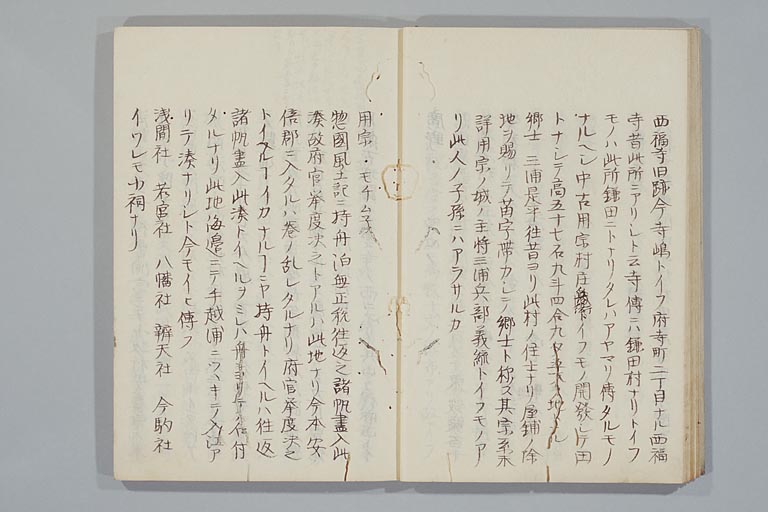 西福寺旧跡今寺嶋トイフ府寺町二丁目ナル西福
寺昔此所ニアリシト云寺傳ニハ鎌田村ナリトイフ
モノハ此所鎌田ニトナリタレハアヤマリ傳タルモノ
ナルヘシ中古用宗村庄トイフモノ開發シテ田
トナシテ高五十七石九斗四合九夕
郷士 三浦是平往昔ヨリ此村ノ住士ナリ屋鋪ノ除
地ヲ賜リテ苗字帶刀シテ郷士ト称ス其家系未
詳用宗ノ城ノ主将三浦兵部義鏡トイフモノアー
リ此人ノ子孫ニハアラサルカ
用宗 モチムネ
惣國風土記ニ持舟泊無正税往返之諸帆盡入此
湊政府官挙度决之トアルハ此地ナリ今本安
倍郡ニ入タルハ巻ノ乱レタルナリ府官挙度决之
トイヘルヿイカナルヿニヤ持舟トイヘルハ往返
諸帆盡入此湊トイヘルヲミレハ舟ヨリテ名付
タルナリ此地海邉ニテ手越浦ニツヽキテ入江ア
リテ湊ナリシト今モイヒ傳フ
浅間社 若宮社 八幡社 辨天社 今駒社
イツレモ小祠ナリ